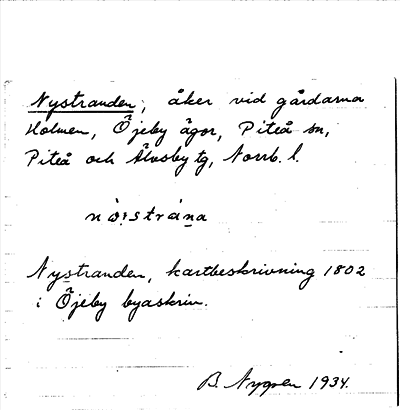 Nystranden, åker vid gårdarna
Holmen, Öjeby ägor, Piteå sn,
Piteå och Älvsby tg, Norrb. l.
Nystranden, kartbeskrivning 1802
i Öjeby byaskrin.
B. Nygren 1934.